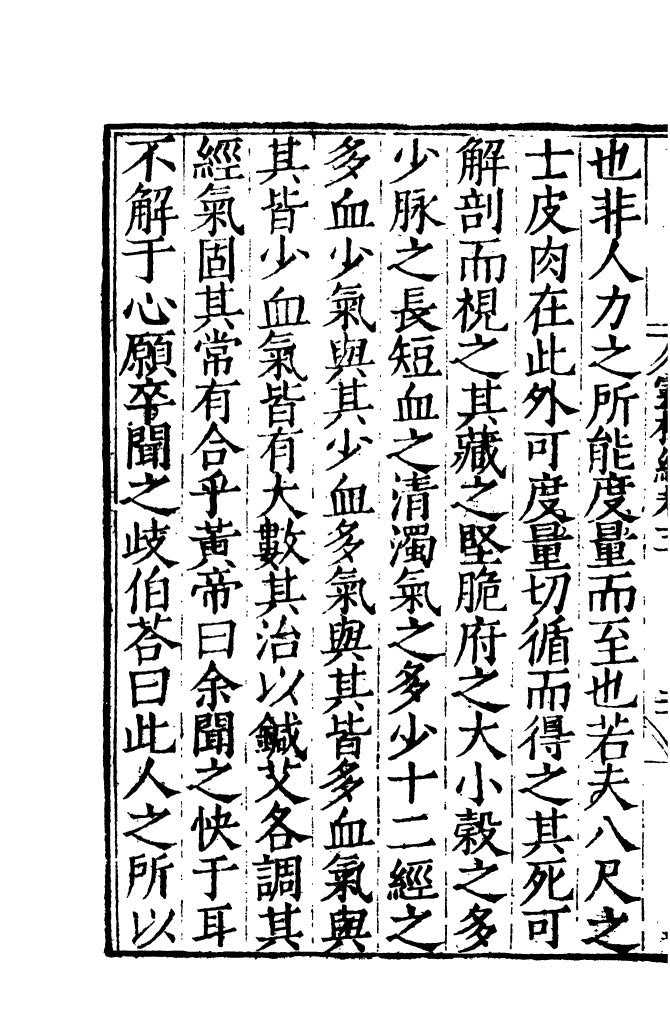 也非人力之所能度量而至也若夫八尺之
士皮肉在此外可度量切循而得之其死可
解剖而視之其藏之堅脆府之大小穀之多
少脉之長短血之清濁氣之多少十二經之
多血少氣與其少血多氣與其皆多血氣與
其皆少血氣皆有大數其治以鍼艾各調其
經氣固其常有合乎黃帝曰余聞之快于耳
不解于心願卒聞之歧伯荅曰此人之所以